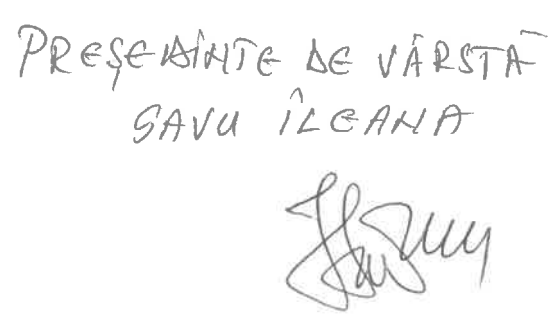 PREȘEDINTE DE VÂRSTĂ
SAVU ÎLEANA